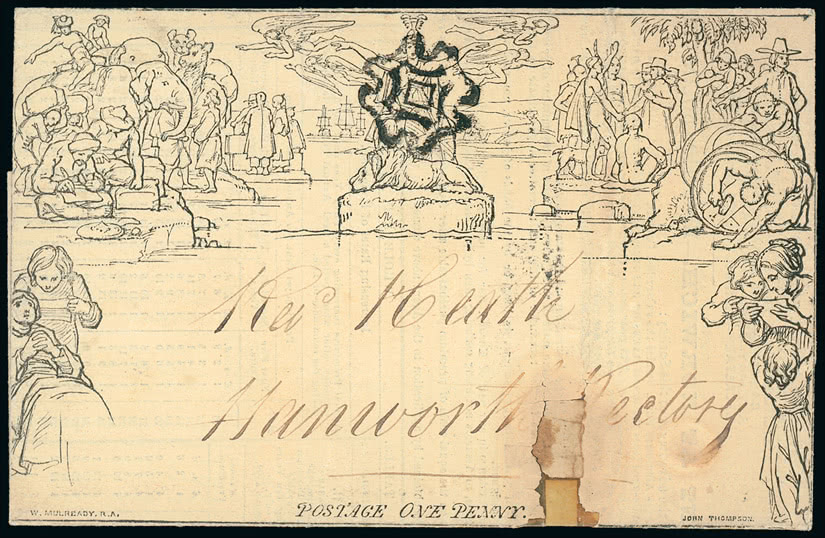 Revd Heath
Hanworth Rectory
POSTAGE ONE PENNY.
W. MULREADY, R.A.
JOHN THOMPSON.